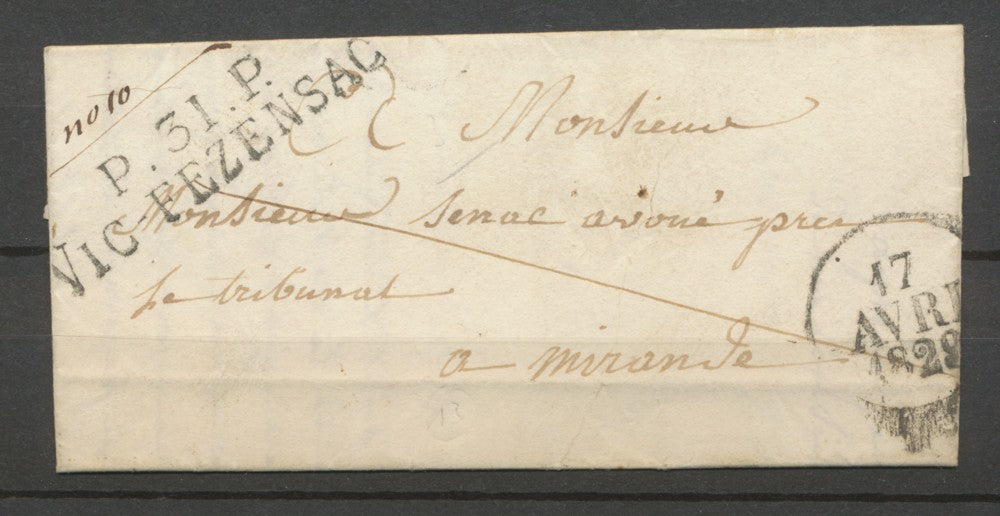 no 10
P.31.P.
VIC-FEZENSAC
Monsieur
Monsieur senac avoué pres
le tribunal
a mirande
17
AVRI
1829